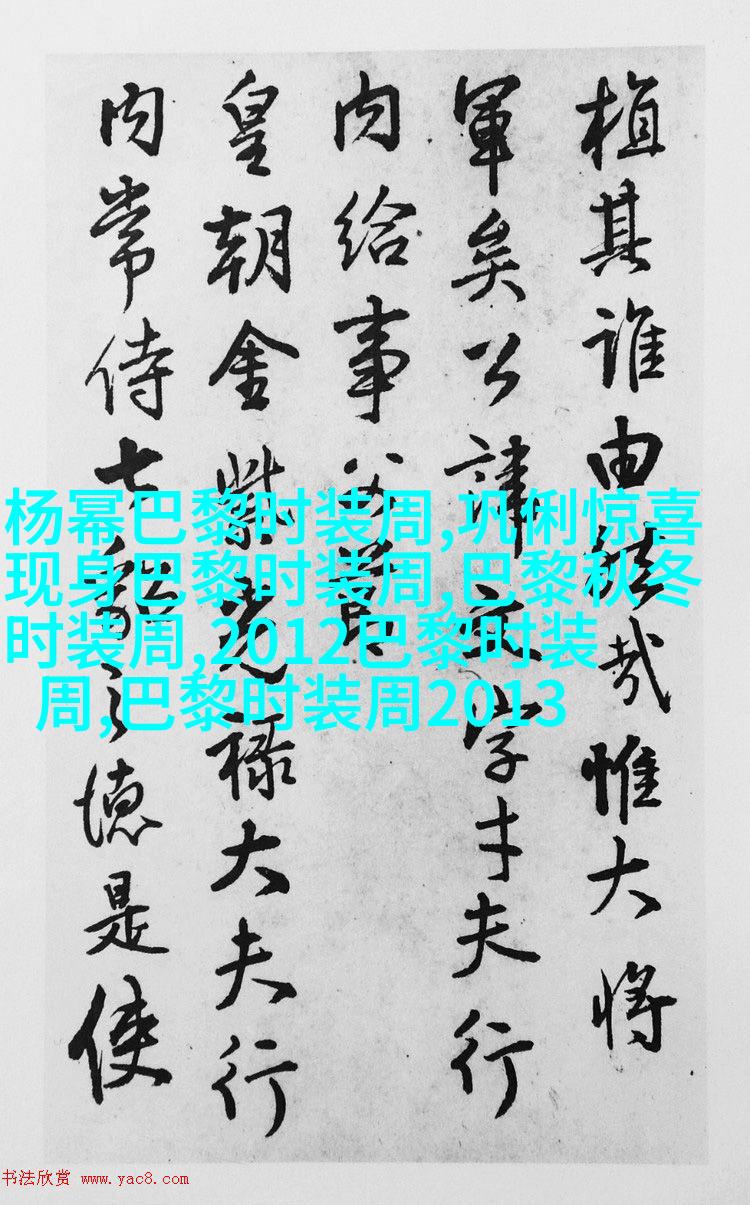 植其誰由哉惟大將
軍矣公諱文字才夫行
内給事父
皇朝金紫光祿大夫行
内常侍七貂之德是使
杨幂巴黎时装周,巩俐惊喜
现身巴黎时装周,巴黎秋冬
时装周,2012巴黎时装
周,巴黎时装周2013
书法欣赏 www.yac8.com